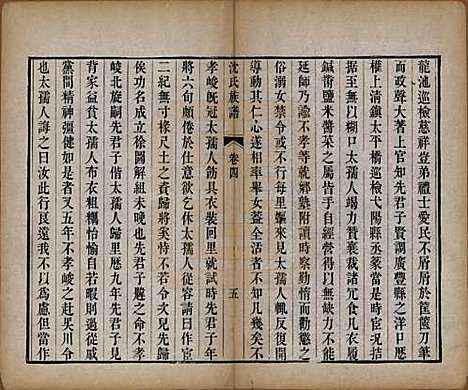 龍池巡檢慈祥豈弟禮士愛民不屑屑於筐篋刀筆
而政聲大著上官知先君子賢調廣豐縣之洋口歷
權上清鎮太平橋巡檢弋陽縣丞篆當是時宦况拮
据至無以糊口太孺人竭力贊襄裁諸冗食凡衣履
鍼黹鹽米醬菜之屬皆手自經營得以無缺力不能
延師乃諭不孝等就鄉塾附讀時察勤惰西江俗
俗溺女禁令不行每里嫗來見太孺人輒反復開
導動其仁心遂相率舉女蓋全活者不知凡幾矣不
沈氏族譜
卷四
五
孝峻旣冠太孺人飭具衣裝回里就試時先君子年
將六旬矣意欲乞休太孺人從容請曰作官
二紀無寸椽尺土之資歸將奚恃不若令次兒侍
俟功名成立徐圖解組未晚也先君子韙之命不孝
峻北旋嗣先君子偕太孺人歸里歷九年先君子
背家益貧太孺人布衣粗糲怡愉自若暇則過從
黨間精神彊健如昔又五年不孝之赴吳川令
也太孺人誨之曰汝此行艮遠我不